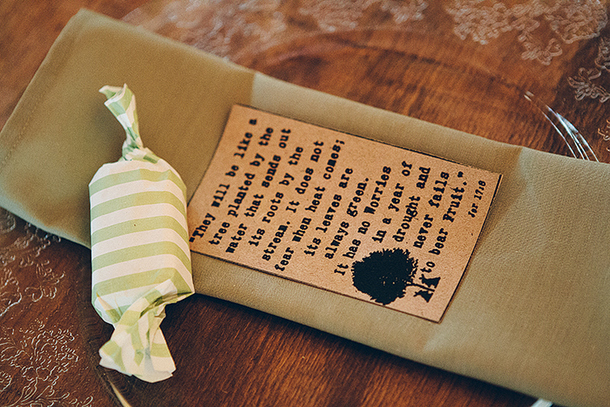 "They will be like a
tree planted by the
water that sends out
its roots by the
stream. It does not
fear when heat comes;
its leaves are
always green.
It has no Worries
in a year of
drought and
never fails
to bear Fruit."
Jer 17:8